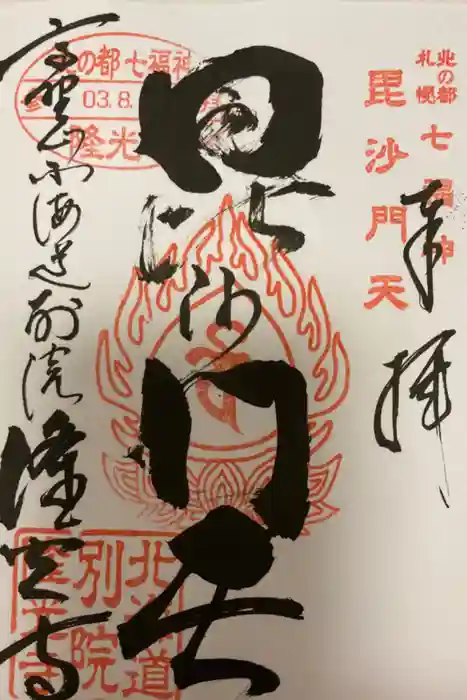 北の都
札幌
七福神
毘沙門天
奉拝
毘沙門天
の都 七福神
03.8.
隆光
高野山北海道別院
隆光寺
北海道
別院
隆光寺